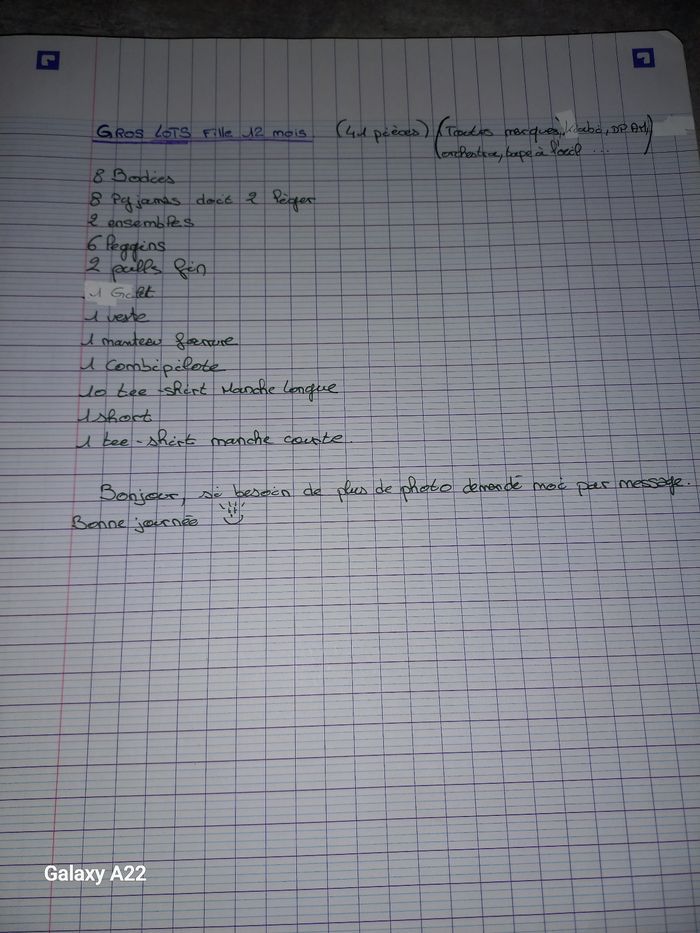 GROS LOTS Fille 12 mois (41 pièces) (Toutes marques, kiabi, DPAM,
orchestra, tape à l'oeil ...)
8 Bodies
8 Pyjamas doit 2 léger
2 ensembles
6 leggins
2 pulls fin
1 Gilet
1 veste
1 manteau fourrure
1 Combipilote
10 tee-shirt Manche longue
1 short
1 tee-shirt manche courte.
Bonjour, si besoin de plus de photo demandé moi par message.
Bonne journée
Galaxy A22